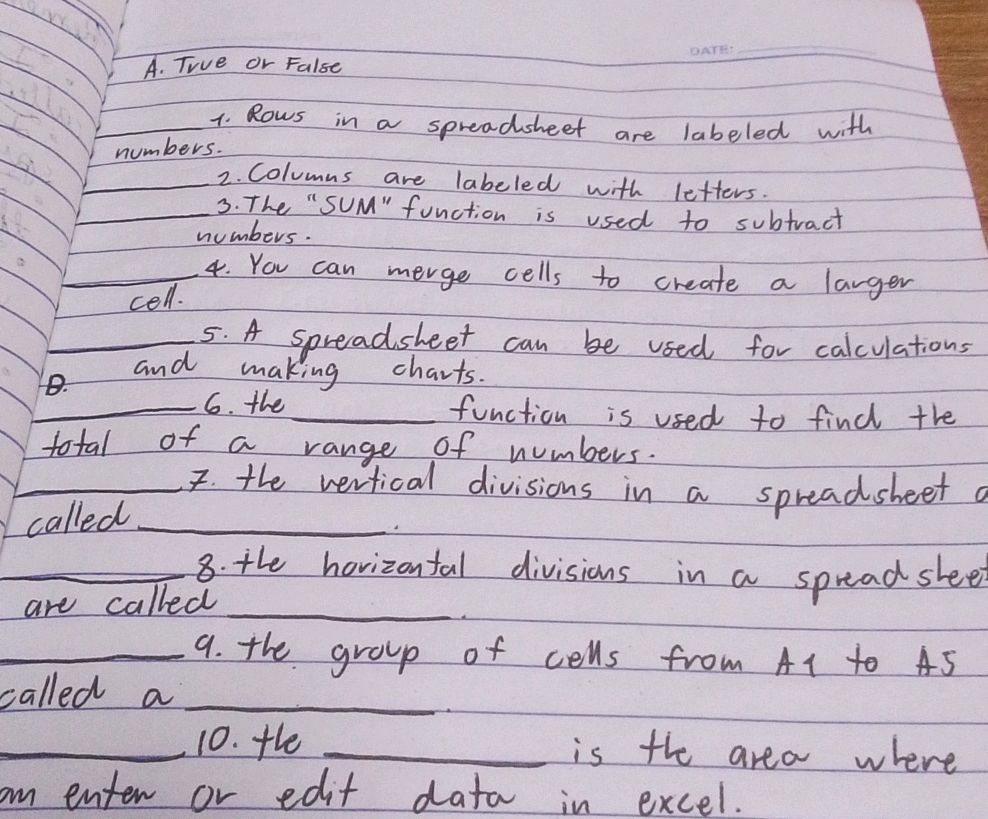 DATE:
A. True or False
1. Rows in a spreadsheet are labeled with
numbers.
2. Columns are labeled with letters.
3. The "SUM" function is used to subtract
numbers.
4. You can merge cells to create a larger
cell.
5. A spreadsheet can be used for calculations
and making charts.
B.
6. the ________ function is used to find the
total of a range of numbers.
7. the vertical divisions in a spreadsheet
called ________.
8. the horizontal divisions in a spreadsheet
are called ________.
9. the group of cells from A1 to A5
called a ________.
10. the ________ is the area where
enter or edit data in excel.